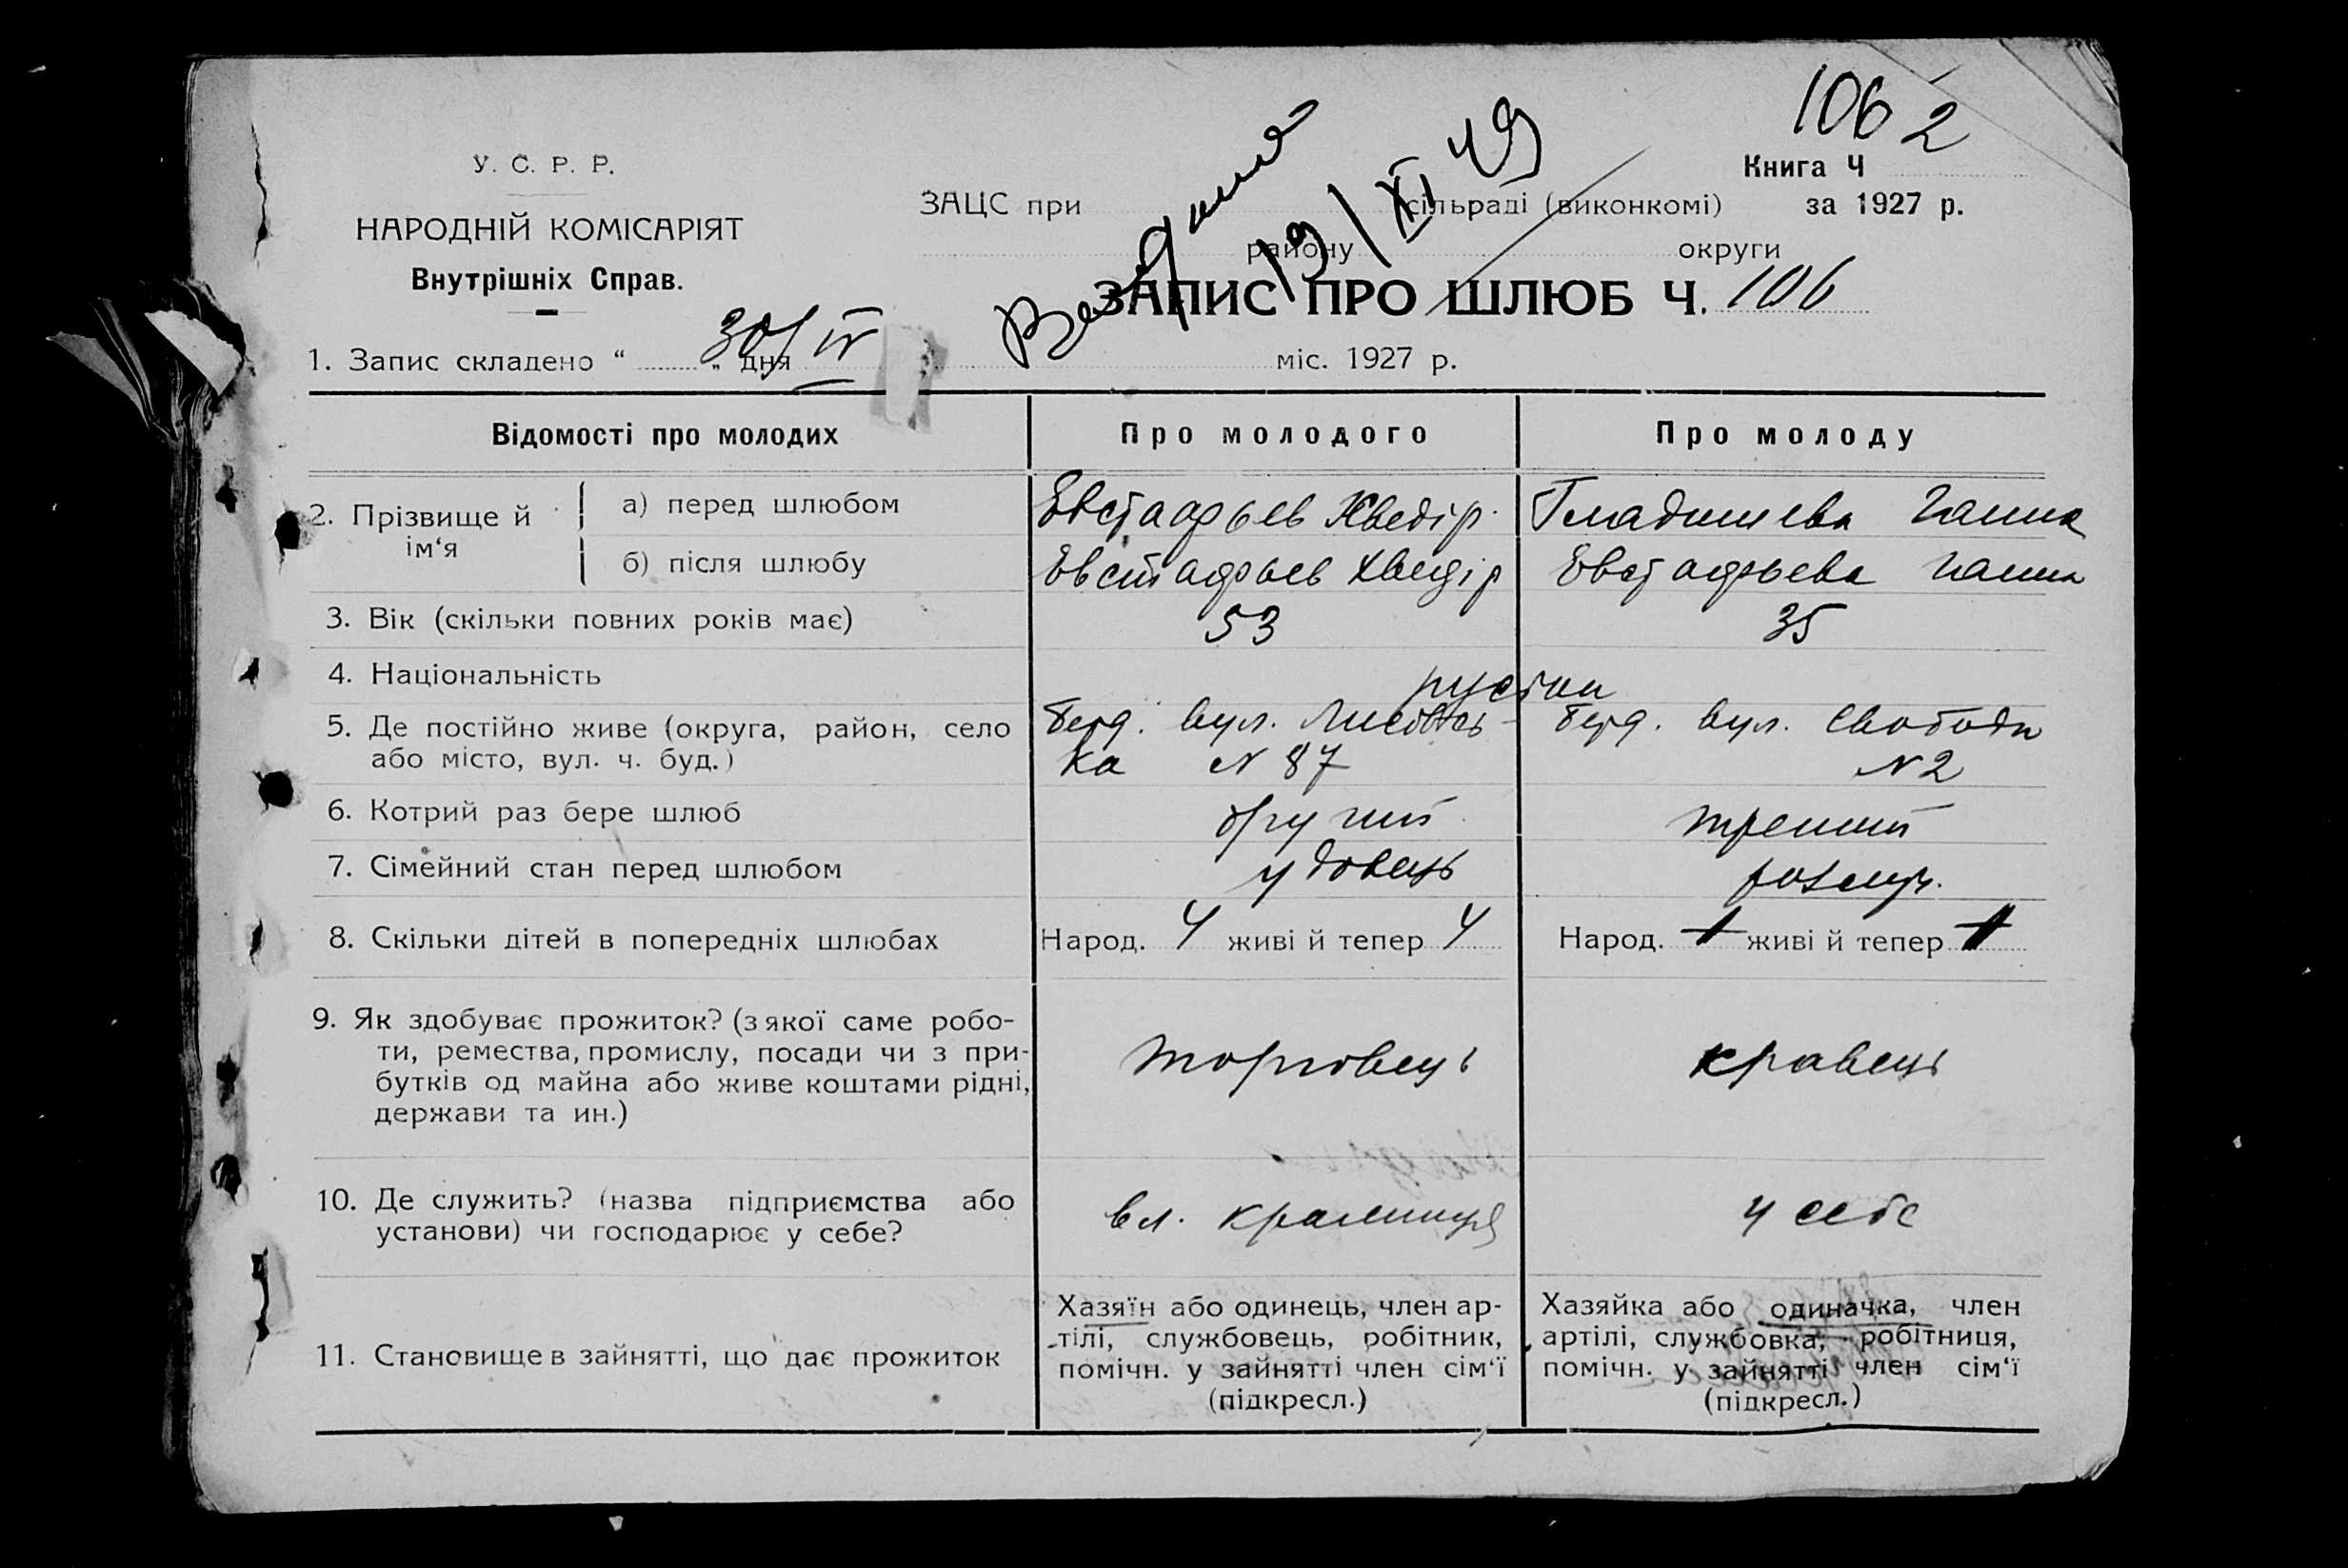 106 2
У. С. Р. Р.
Книга Ч
ЗАЦС при сільраді (виконкомі) за 1927 р.
НАРОДНІЙ КОМІСАРІЯТ
району округи
19/XI 49
Внутрішніх Справ.
ЗАПИС ПРО ШЛЮБ Ч. 106
1. Запис складено “ 30 „ дня IV міс. 1927 р.
Відомості про молодих Про молодого Про молоду
2. Прізвище й ім‘я
а) перед шлюбом Евстафьев Хведір Гладишева Ганна
б) після шлюбу Евстафьев Хведір Евстафьева Ганна
3. Вік (скільки повних років має) 53 35
4. Національність руські
5. Де постійно живе (округа, район, село Берд. вул. Берд. вул. Свободи
або місто, вул. ч. буд.) ка № 87 № 2
6. Котрий раз бере шлюб другий третий
7. Сімейний стан перед шлюбом удовець розлуч.
8. Скільки дітей в попередніх шлюбах Народ. 4 живі й тепер 4 Народ. 1 живі й тепер 1
9. Як здобуває прожиток? (з якої саме робо-
ти, ремества, промислу, посади чи з при- торговець кравець
бутків од майна або живе коштами рідні,
держави та ин.)
10. Де служить? (назва підприємства або вл. крамниця у себе
установи) чи господарює у себе?
11. Становище в зайнятті, що дає прожиток
Хазяїн або одинець, член ар-
тілі, службовець, робітник,
помічн. у зайнятті член сім‘ї
(підкресл.)
Хазяйка або одиначка, член
артілі, службовка, робітниця,
помічн. у зайнятті член сім‘ї
(підкресл.)